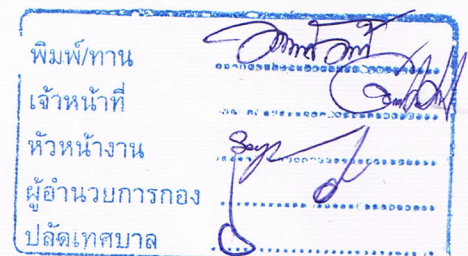 พิมพ์/ทาน
เจ้าหน้าที่
หัวหน้างาน
ผู้อำนวยการกอง
ปลัดเทศบาล